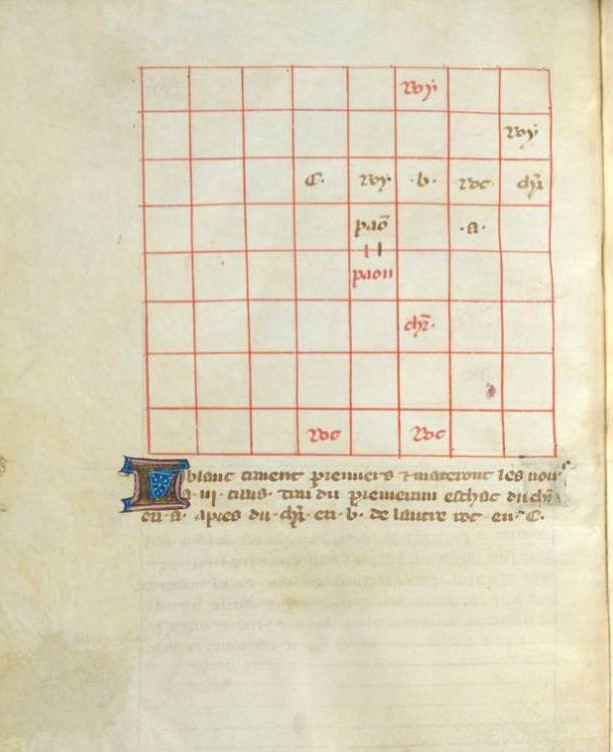 Roy
Roy
C. Roy .b. Roc chr̄
paō .a.
paou
chr̄.
Roc Roc
blanc traient premiers & materont les noirs
a .iij. trais. trai du premerain eschac du chr̄
en .a. apres du .chr̄. en .b. de lautre roc en .C.